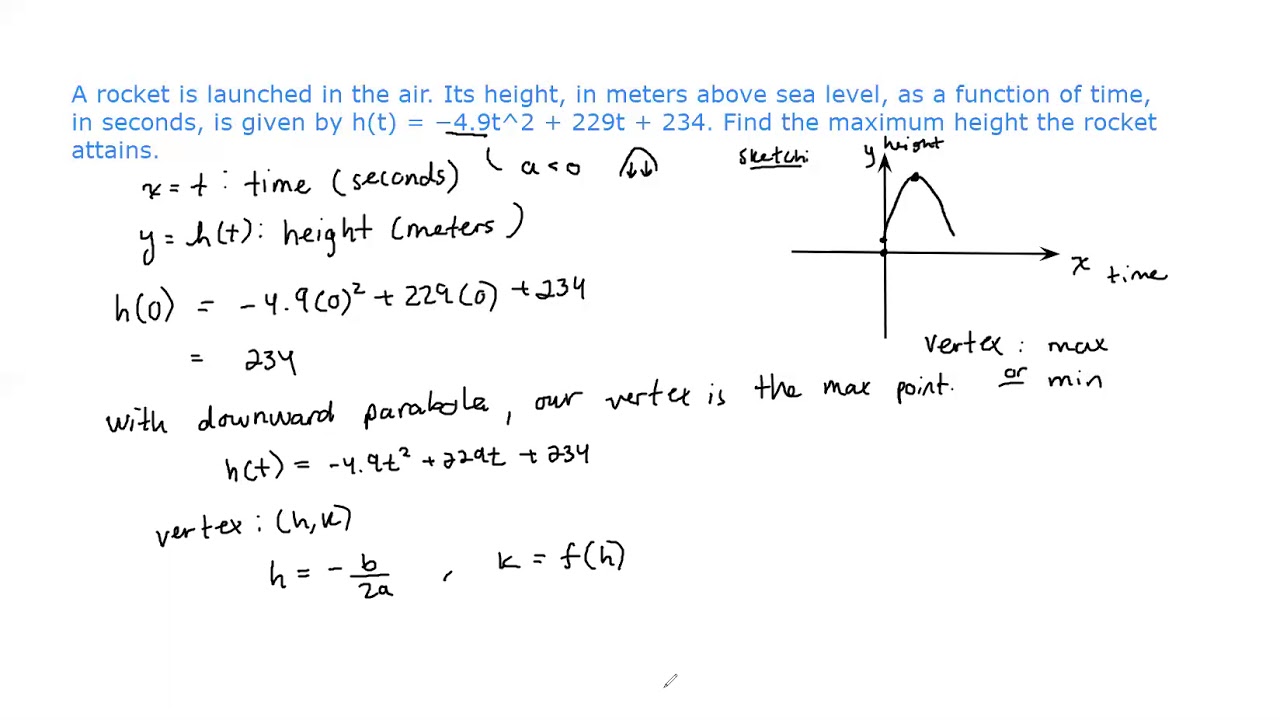 A rocket is launched in the air. Its height, in meters above sea level, as a function of time,
in seconds, is given by h(t) = −4.9t^2 + 229t + 234. Find the maximum height the rocket
attains.
a < 0
sketch:
y height
x = t : time (seconds)
y = h(t): height (meters)
x time
h(0) = -4.9(0)² + 229(0) + 234
= 234
vertex : max
or min
with downward parabola, our vertex is the max point.
h(t) = -4.9t² + 229t + 234
vertex : (h,k)
h = - b/2a , k = f(h)